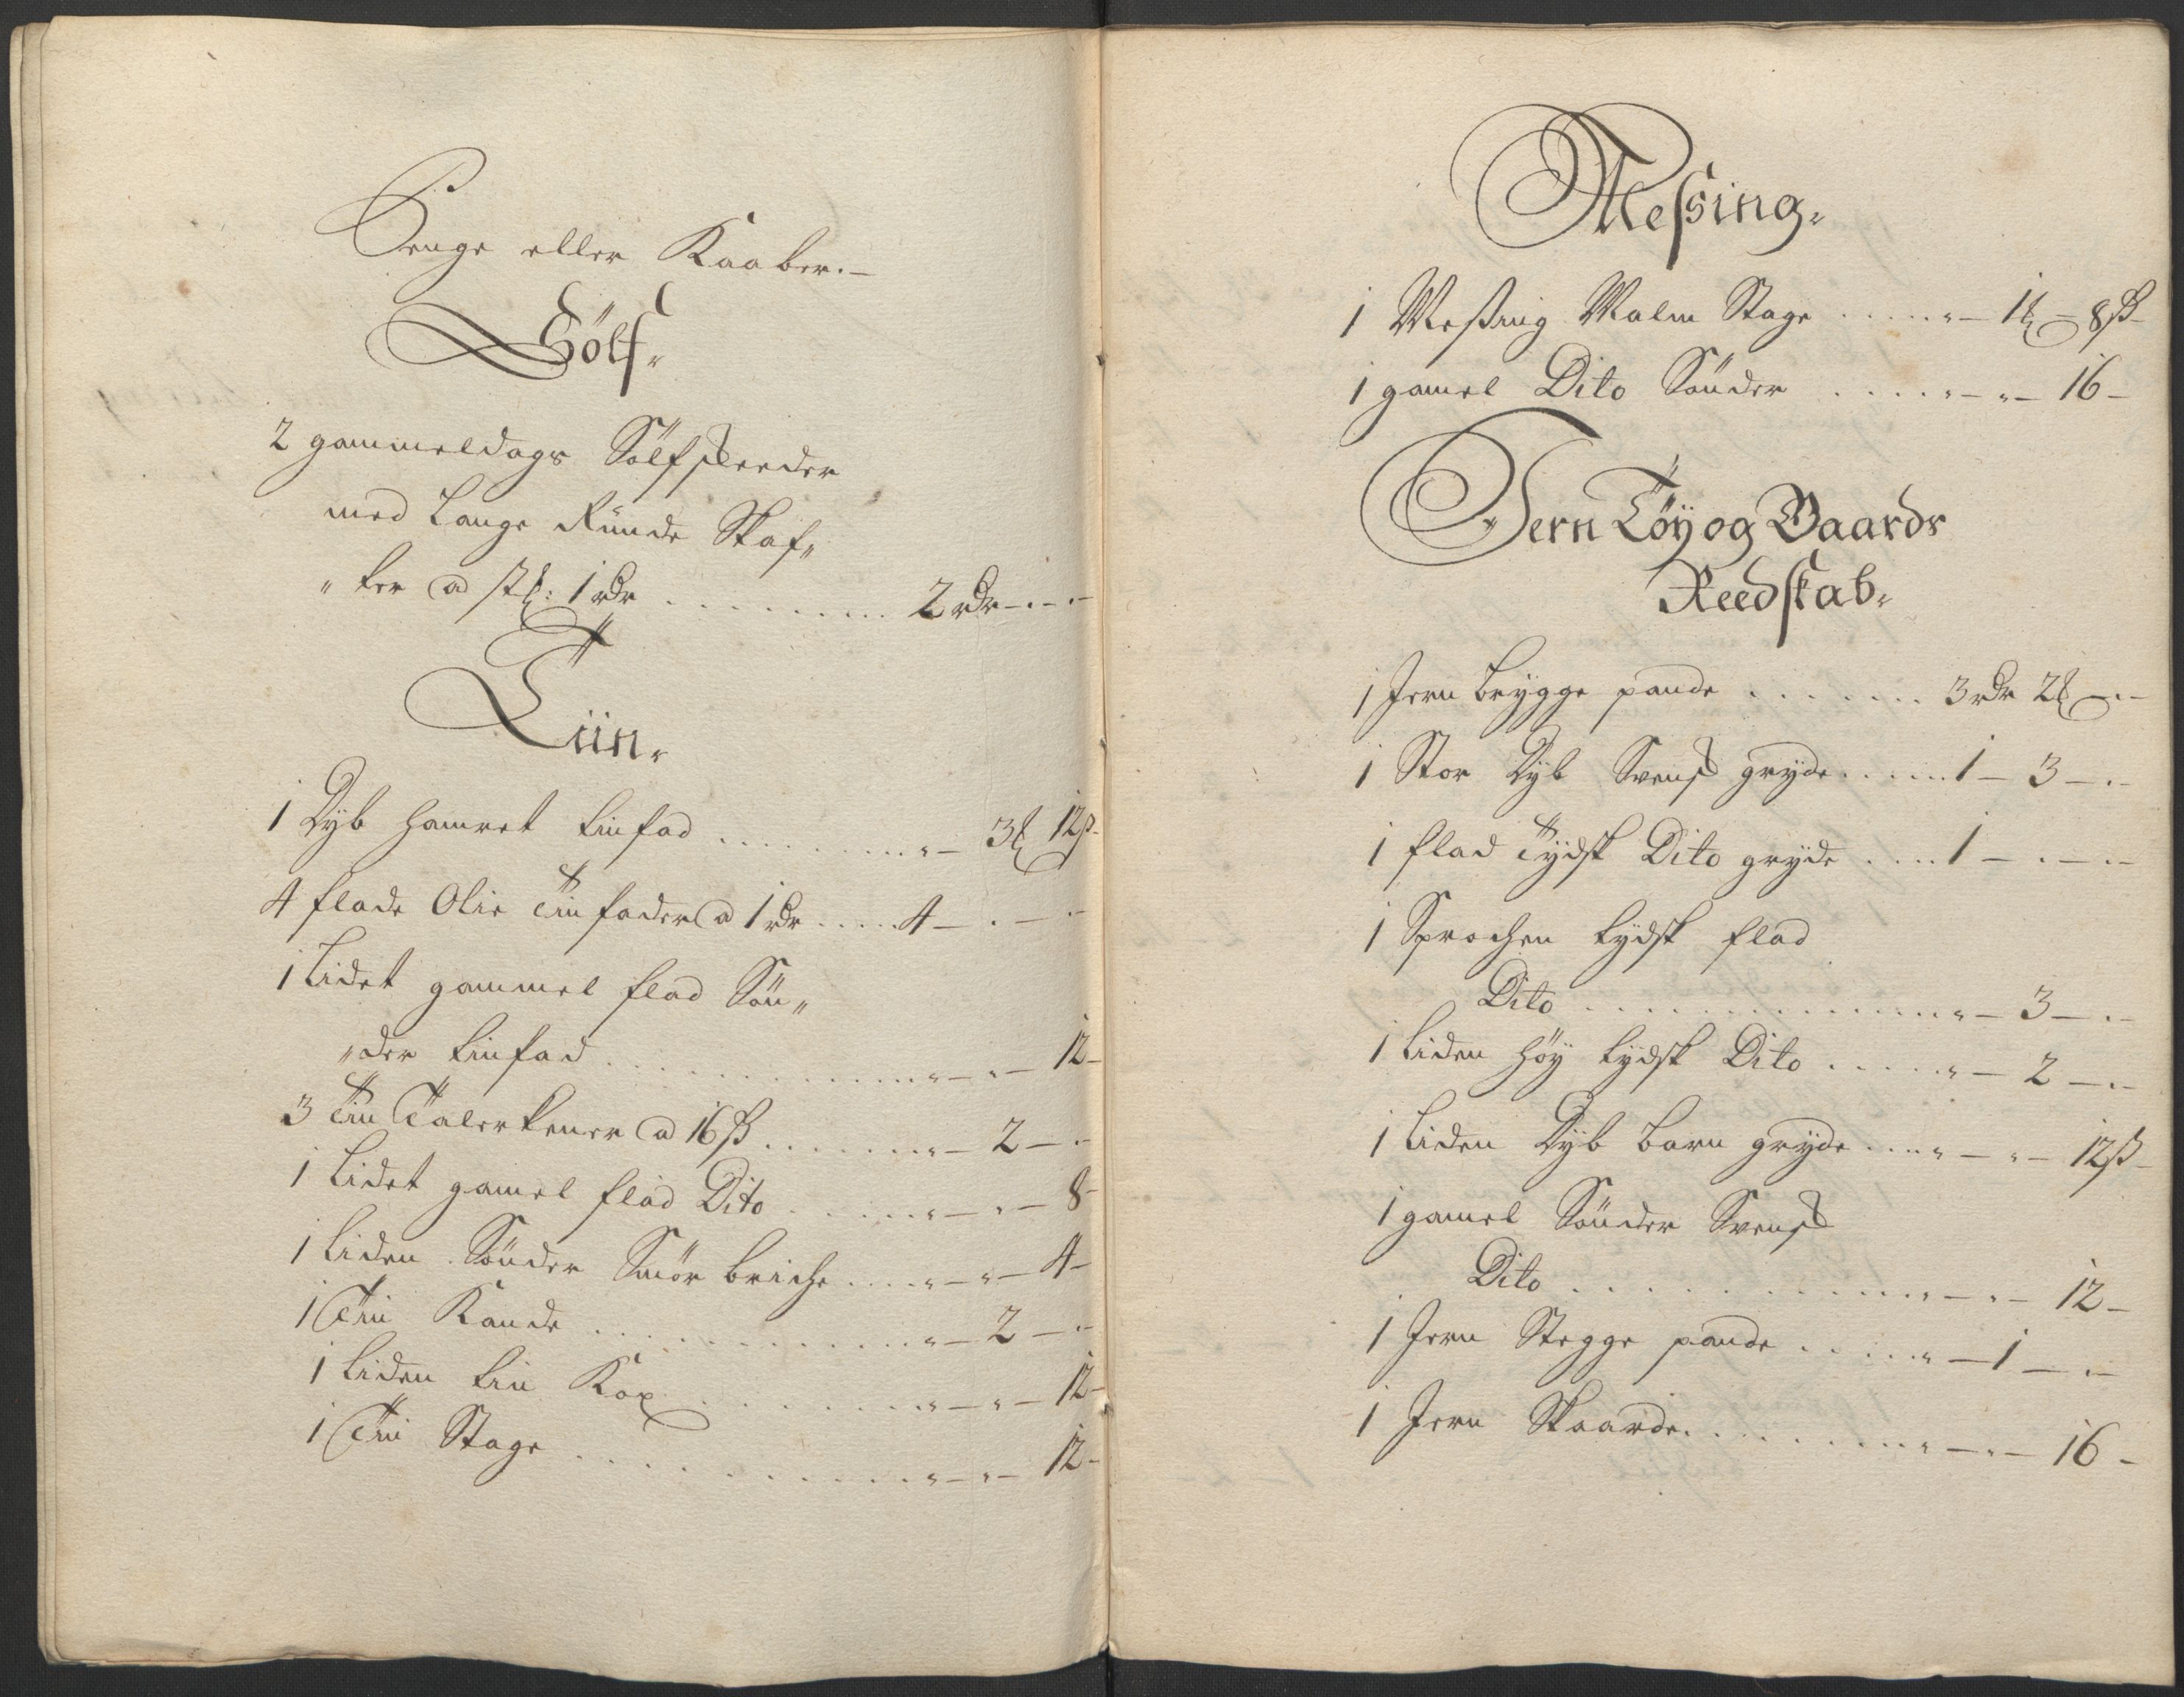 Penge eller Kaaber. –
Sölf„
2 gammeldags Sölfskeeder
med Lange Runde Skaf„
„ter a st: 1 rdr ......... 2 rdr – „ – „ –
Tiin„
1 Dyb hamret tinfad ......... „ – 3 12ß
4 flade Olie Tinfader a 1 rdr ..... 4 – „ – „ –
1 Lidet gammel flad Sön„
„der tinfad ............. „ – „ – 12 –
3 Tin Talerkener a 16 ß ......... „ – 2 – „
1 Lidet gamel flad Dito ....... „ – „ – 8 –
1 Liden Sönder Smör briche ..... „ – „ – 4 –
1 Tin Kande ............. „ – 2 – „ –
1 Liden tin Kop ......... „ – „ – 12 –
1 Tin Stage ............. „ – „ – 12 –
Messing„
1 Messing Malm Stage ..... „ – 1 – 8 ß
1 gamel Dito Sönder ..... „ – „ – 16 –
Jern Töy og Baards
Reedskab„
1 Jern brygge pande ....... 3 rdr 2 – „ –
1 Stor Dyb Svensk gryde ..... 1 – 3 – „ –
1 flad Tydsk Dito gryde .... 1 – „ – „ –
1 Sprochen tydsk flad
Dito ............. „ – 3 – „ –
1 Liden höy tydsk Dito ..... „ – 2 – „ –
1 Liden Dyb barn gryde .... „ – „ – 12 ß
1 gamel Sönder Svensk
Dito ............. „ – „ – 12 –
1 Jern Stegge pande ..... „ – 1 – „ –
1 Jern Skaarde ......... „ – „ – 16 –